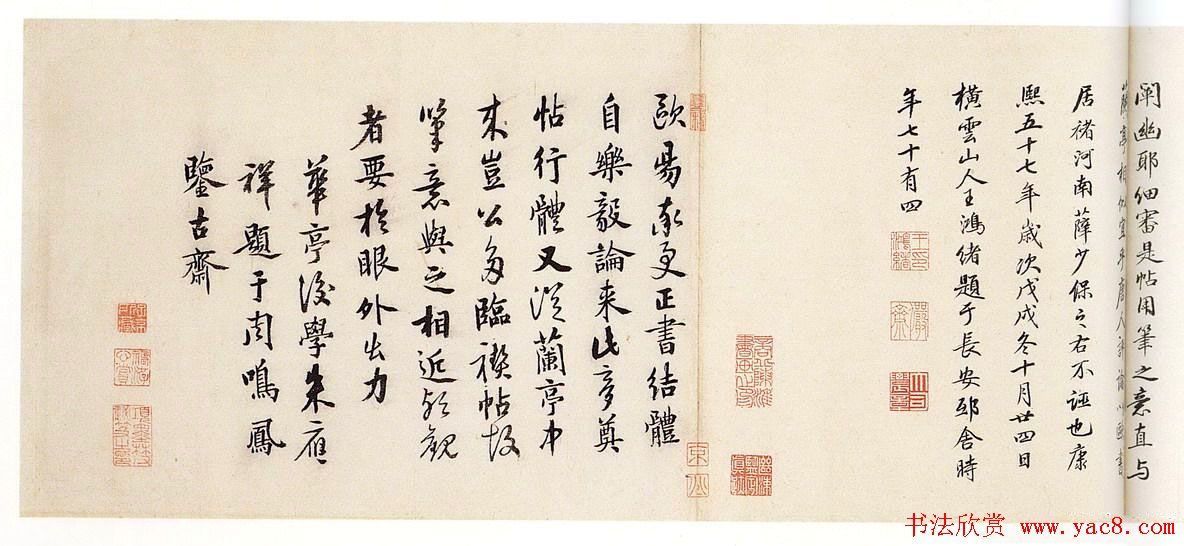 闡幽耶細審是帖用筆之意直与
居褚河南薛少保之右不誣也康
熙五十七年歲次戊戌冬十月廿四日
橫雲山人王鴻緒題于長安邸舍時
年七十有四
歐昜率更正書結體
自樂毅論来此夢奠
帖行體又從蘭亭中
来豈公多臨禊帖故
筆意與之相近欤觀
者要於眼外出力
華亭後學朱應
祥題于周鳴鳳
鑒古齋
书法欣赏 www.yac8.com